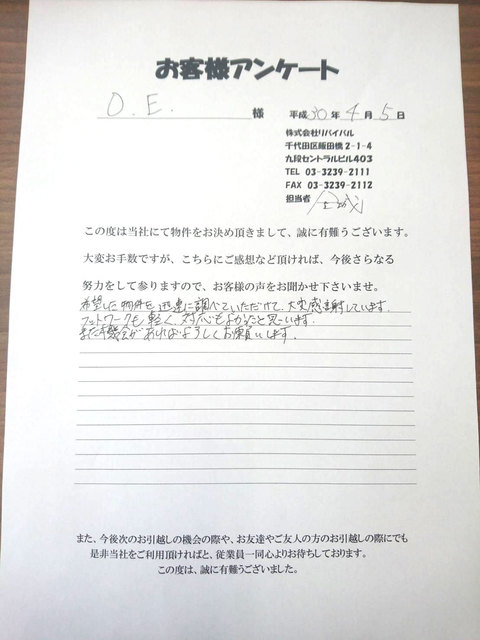 お客様アンケート
O.E. 様 平成30年4月5日
株式会社リバイバル
千代田区飯田橋2-1-4
九段セントラルビル403
TEL 03-3239-2111
FAX 03-3239-2112
担当者
この度は当社にて物件をお決め頂きまして、誠に有難うございます。
大変お手数ですが、こちらにご感想など頂ければ、今後さらなる
努力をして参りますので、お客様の声をお聞かせ下さいませ。
希望した物件を迅速に調べていただけて、大変感謝しています。
フットワークも軽く、対応もよかったと思います。
また機会があればよろしくお願いします。
また、今後次のお引越しの機会の際や、お友達やご友人の方のお引越しの際にでも
是非当社をご利用頂ければと、従業員一同心よりお待ちしております。
この度は、誠に有難うございました。